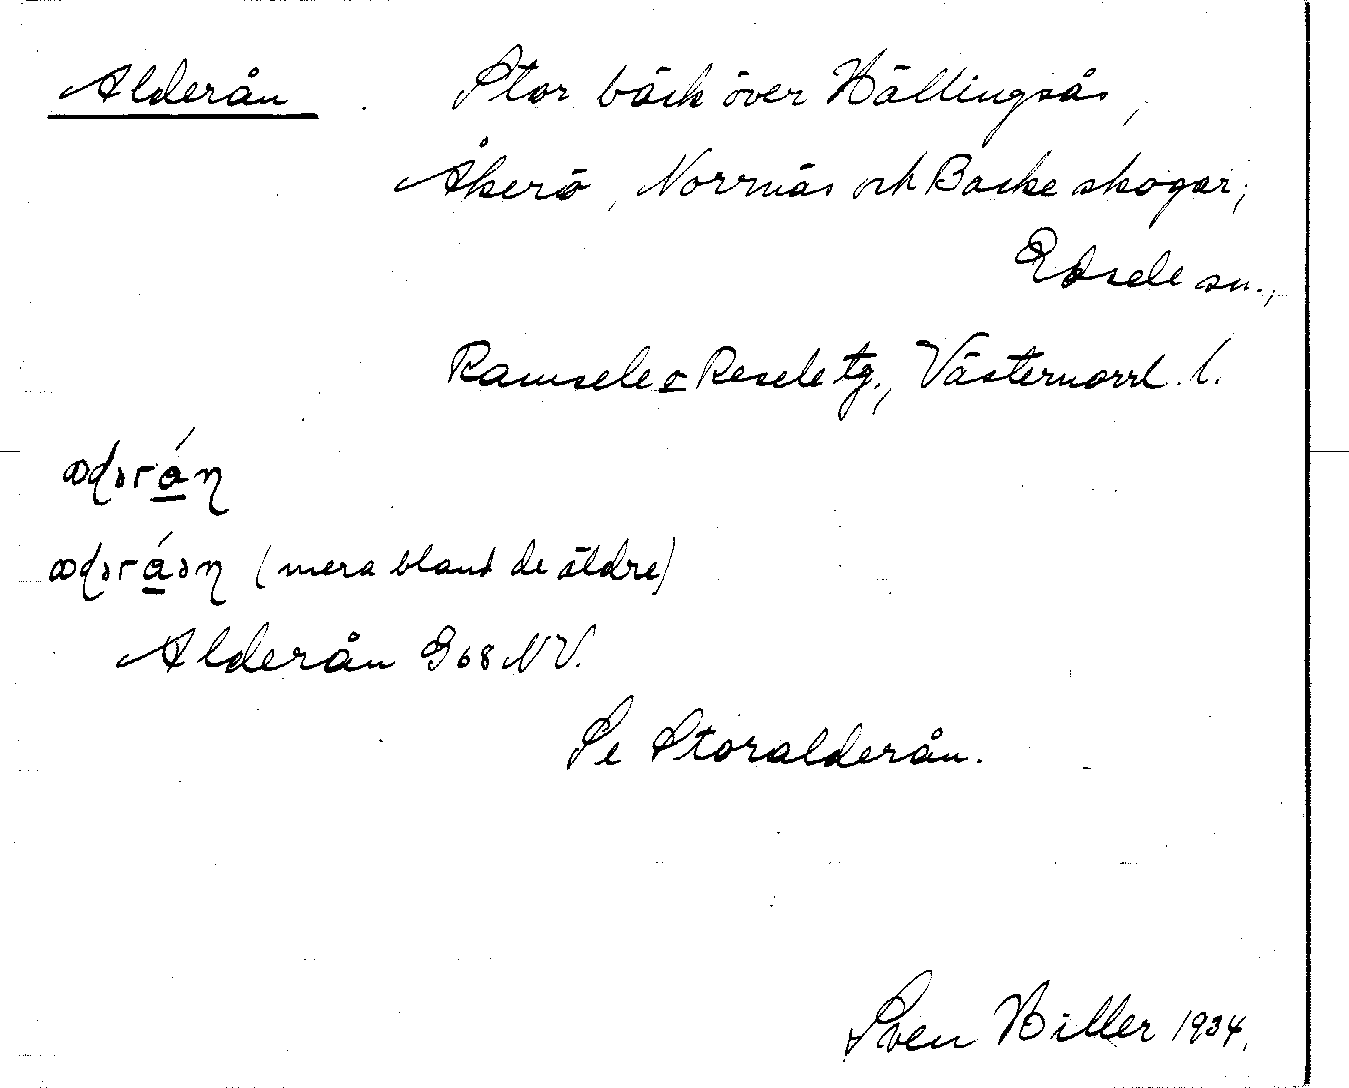 Alderån. Stor bäck över Hällingsås,
Åkerö, Norrnäs och Backe skogar,
Edsele sn.,
Ramsele o Resele tg., Västernorrl. l.
(mera bland de äldre)
Alderån G68 NV.
Se Storalderån.
Sven Hiller 1934.